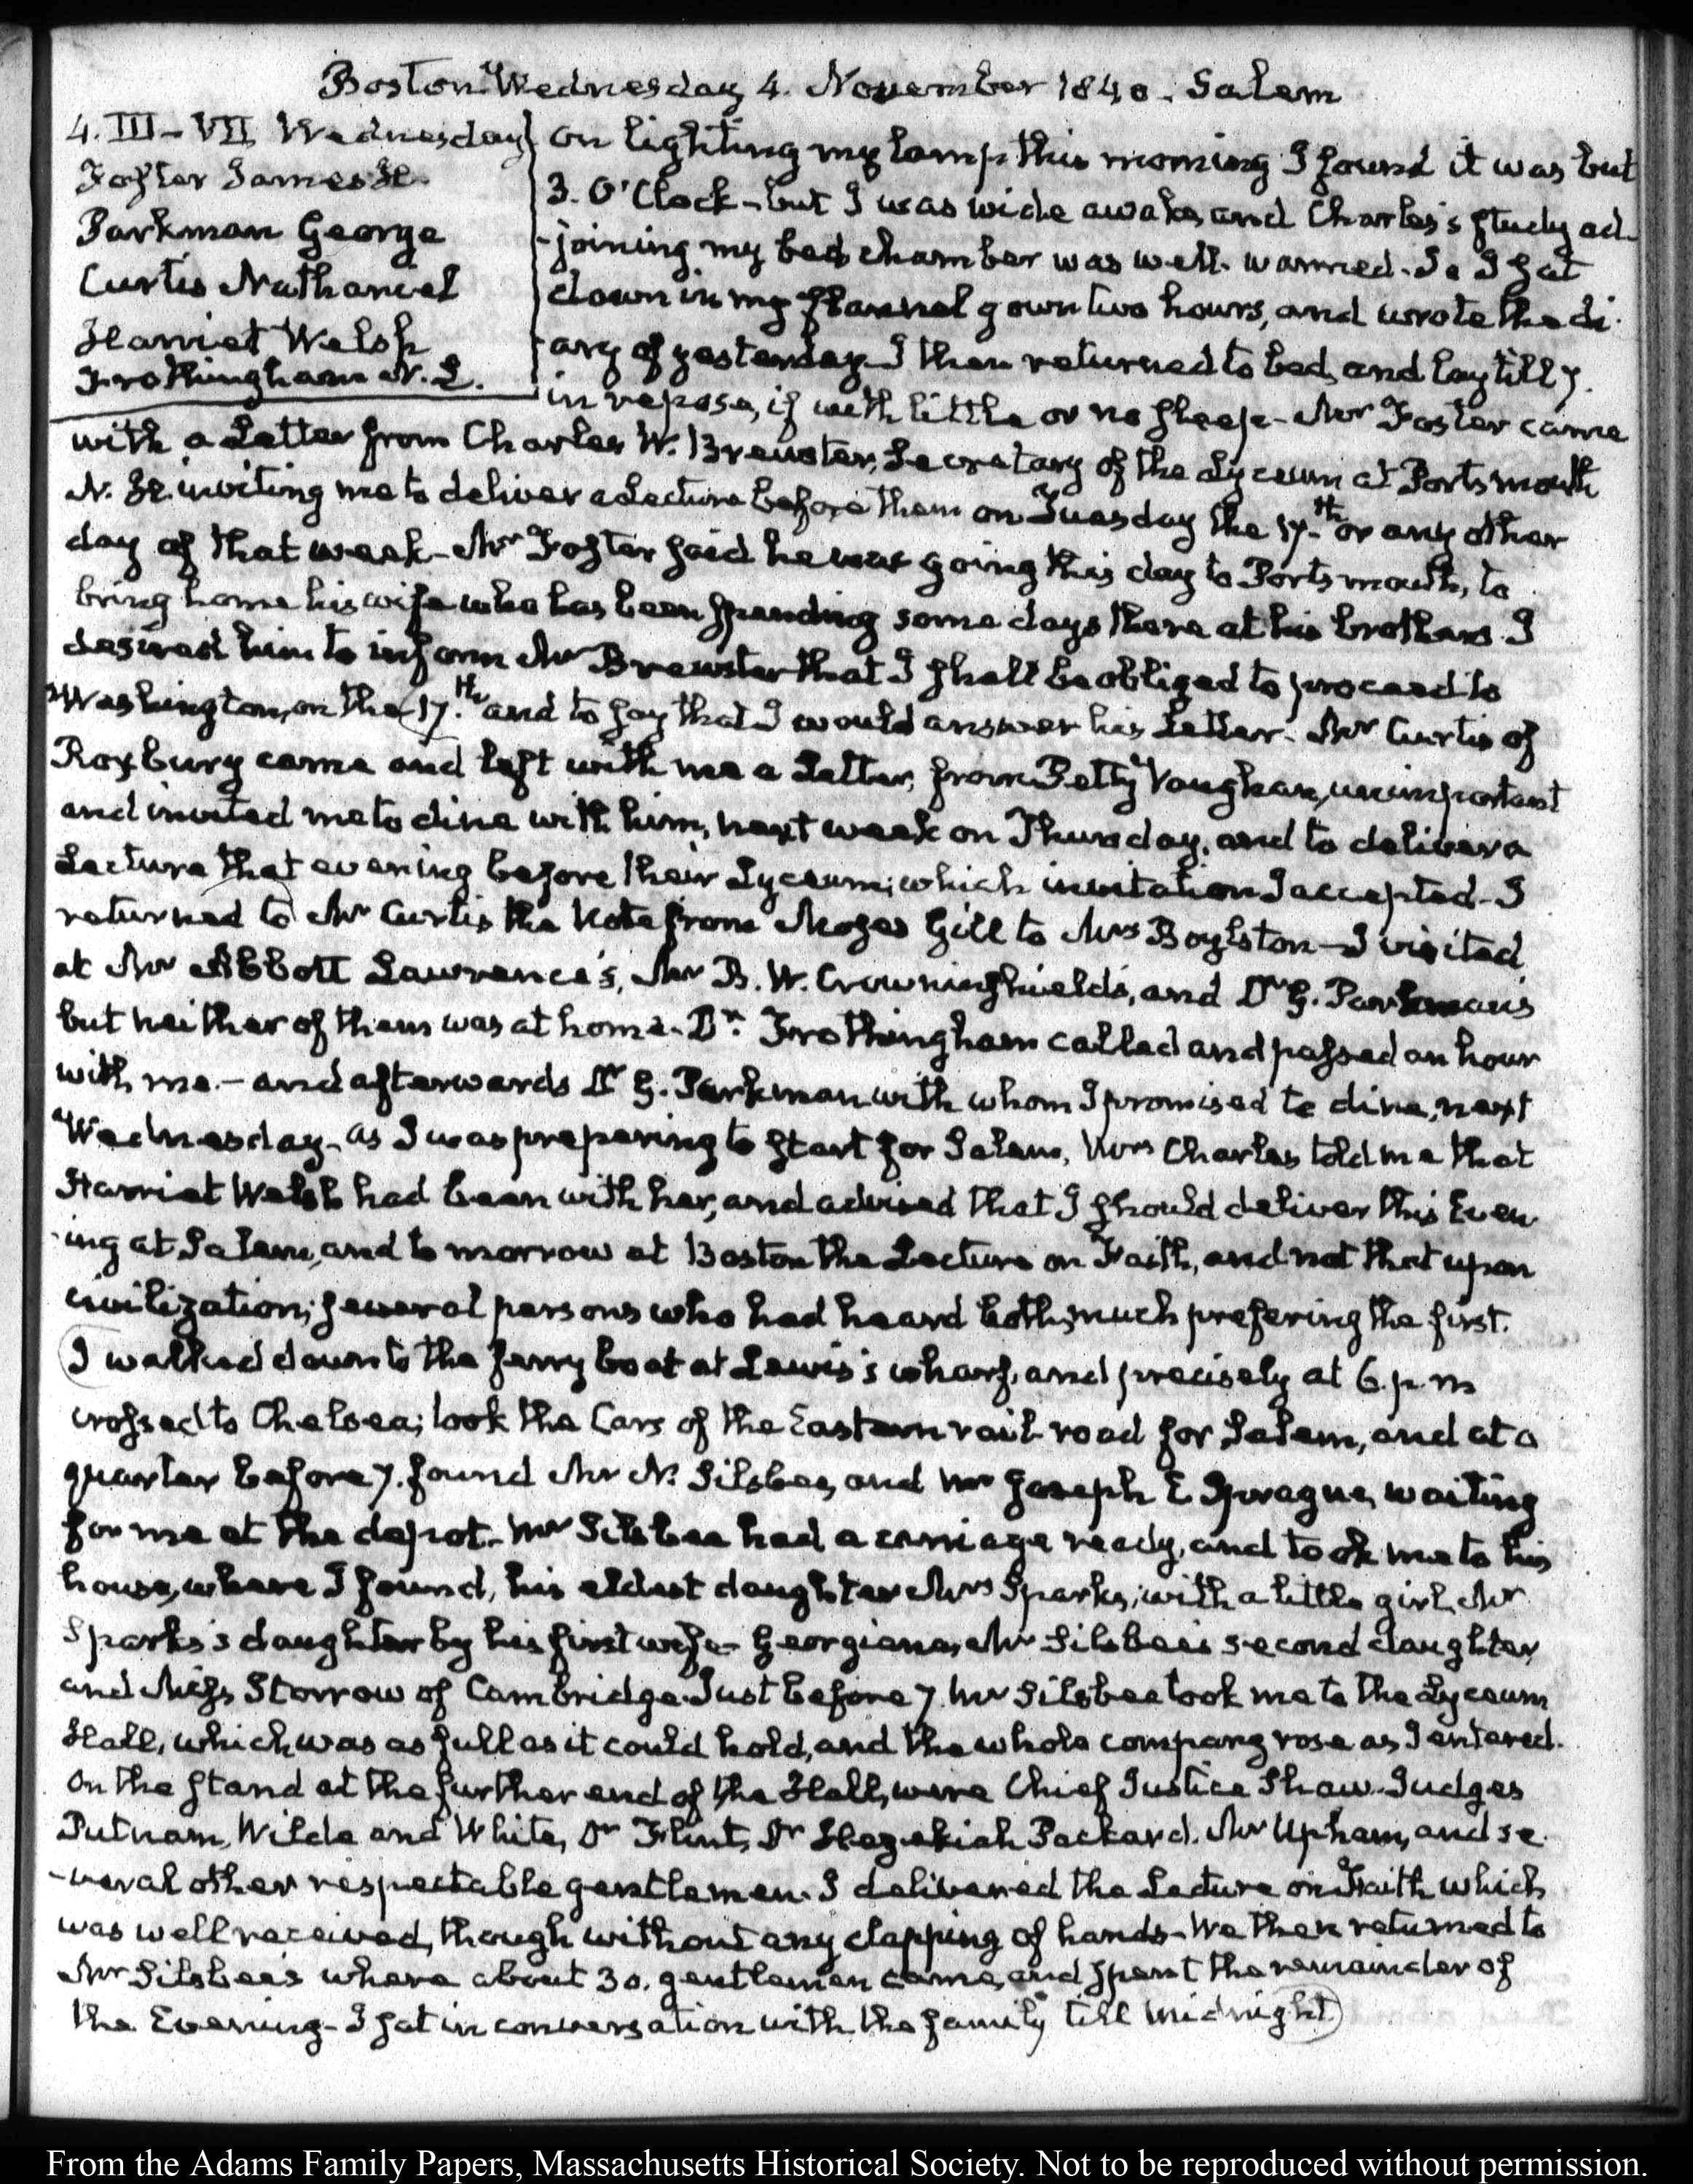 Boston Wednesday 4. November 1840. Salem
4. III–VII. Wednesday
Foster James H.
Parkman George
Curtis Nathaniel
Harriet Welsh
Frothingham N. L.
On lighting my lamp this morning I found it was but
3. O'Clock – but I was wide awake, and Charles's study ad-
-joining my bed chamber was well warmed. So I sat
down in my flannel gown two hours, and wrote the di-
-ary of yesterday. I then returned to bed, and lay till 7.
in repose, if with little or no sleep – Mr Foster came
with a Letter from Charles W. Brewster, Secretary of the Lyceum at Portsmouth
N. H. inviting me to deliver a Lecture before them on Tuesday the 17th or any other
day of that week – Mr Foster said he was going this day to Portsmouth, to
bring home his wife who has been spending some days there at his brothers. I
desired him to inform Mr Brewster that I shall be obliged to proceed to
Washington, on the 17th and to say that I would answer his Letter. Mr Curtis of
Roxbury came and left with me a Letter, from Petty Vaughan, unimportant
and invited me to dine with him, next week on Thursday, and to deliver a
Lecture that evening before their Lyceum; which invitation I accepted – I
returned to Mr Curtis the Note from Moses Gill to Mrs Boylston – I visited
at Mr Abbott Lawrence's, Mr B. W. Crowninshield's, and Dr G. Parkman's
but neither of them was at home. Dr. Frothingham called and passed an hour
with me. – and afterwards Dr G. Parkman with whom I promised to dine, next
Wednesday – as I was preparing to start for Salem, Mrs Charles told me that
Harriet Welsh had been with her, and advised that I should deliver this Even
-ing at Salem, and to morrow at Boston the Lecture on Faith, and not that upon
civilization; several persons who had heard both, much prefering the first.
I walked down to the ferry boat at Lewis's wharf, and precisely at 6. p. m
crossed to Chelsea; took the Cars of the Eastern rail road for Salem, and at a
quarter before 7. found Mr N. Silsbee, and Mr Joseph E Sprague, waiting
for me at the depot – Mr Silsbee had a carriage ready, and took me to his
house, where I found, his eldest daughter Mrs Sparks, with a little girl, Mr
Sparks's daughter by his first wife – Georgiana, Mr Silsbee's second daughter,
and Miss Storrow of Cambridge. Just before 7. Mr Silsbee took me to the Lyceum
Hall, which was as full as it could hold, and the whole company rose as I entered.
On the stand at the further end of the Hall, were Chief Justice Shaw. Judges
Putnam, Wilde and White, Dr Flint, Dr Hezekiah Packard. Mr Upham, and se-
-veral other respectable gentlemen. I delivered the Lecture on Faith which
was well received, though without any clapping of hands – We then returned to
Mr Silsbee's where about 30. gentlemen came, and spent the remainder of
the Evening – I sat in conversation with the family till midnight.
From the Adams Family Papers, Massachusetts Historical Society. Not to be reproduced without permission.